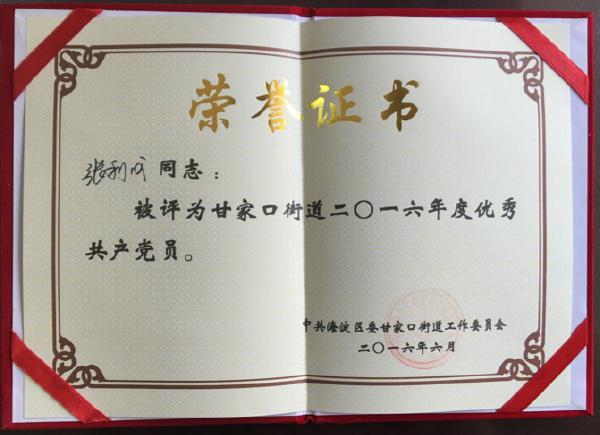 荣誉证书
张利成同志：
被评为甘家口街道二〇一六年度优秀
共产党员。
中共海淀区委甘家口街道工作委员会
二〇一六年六月